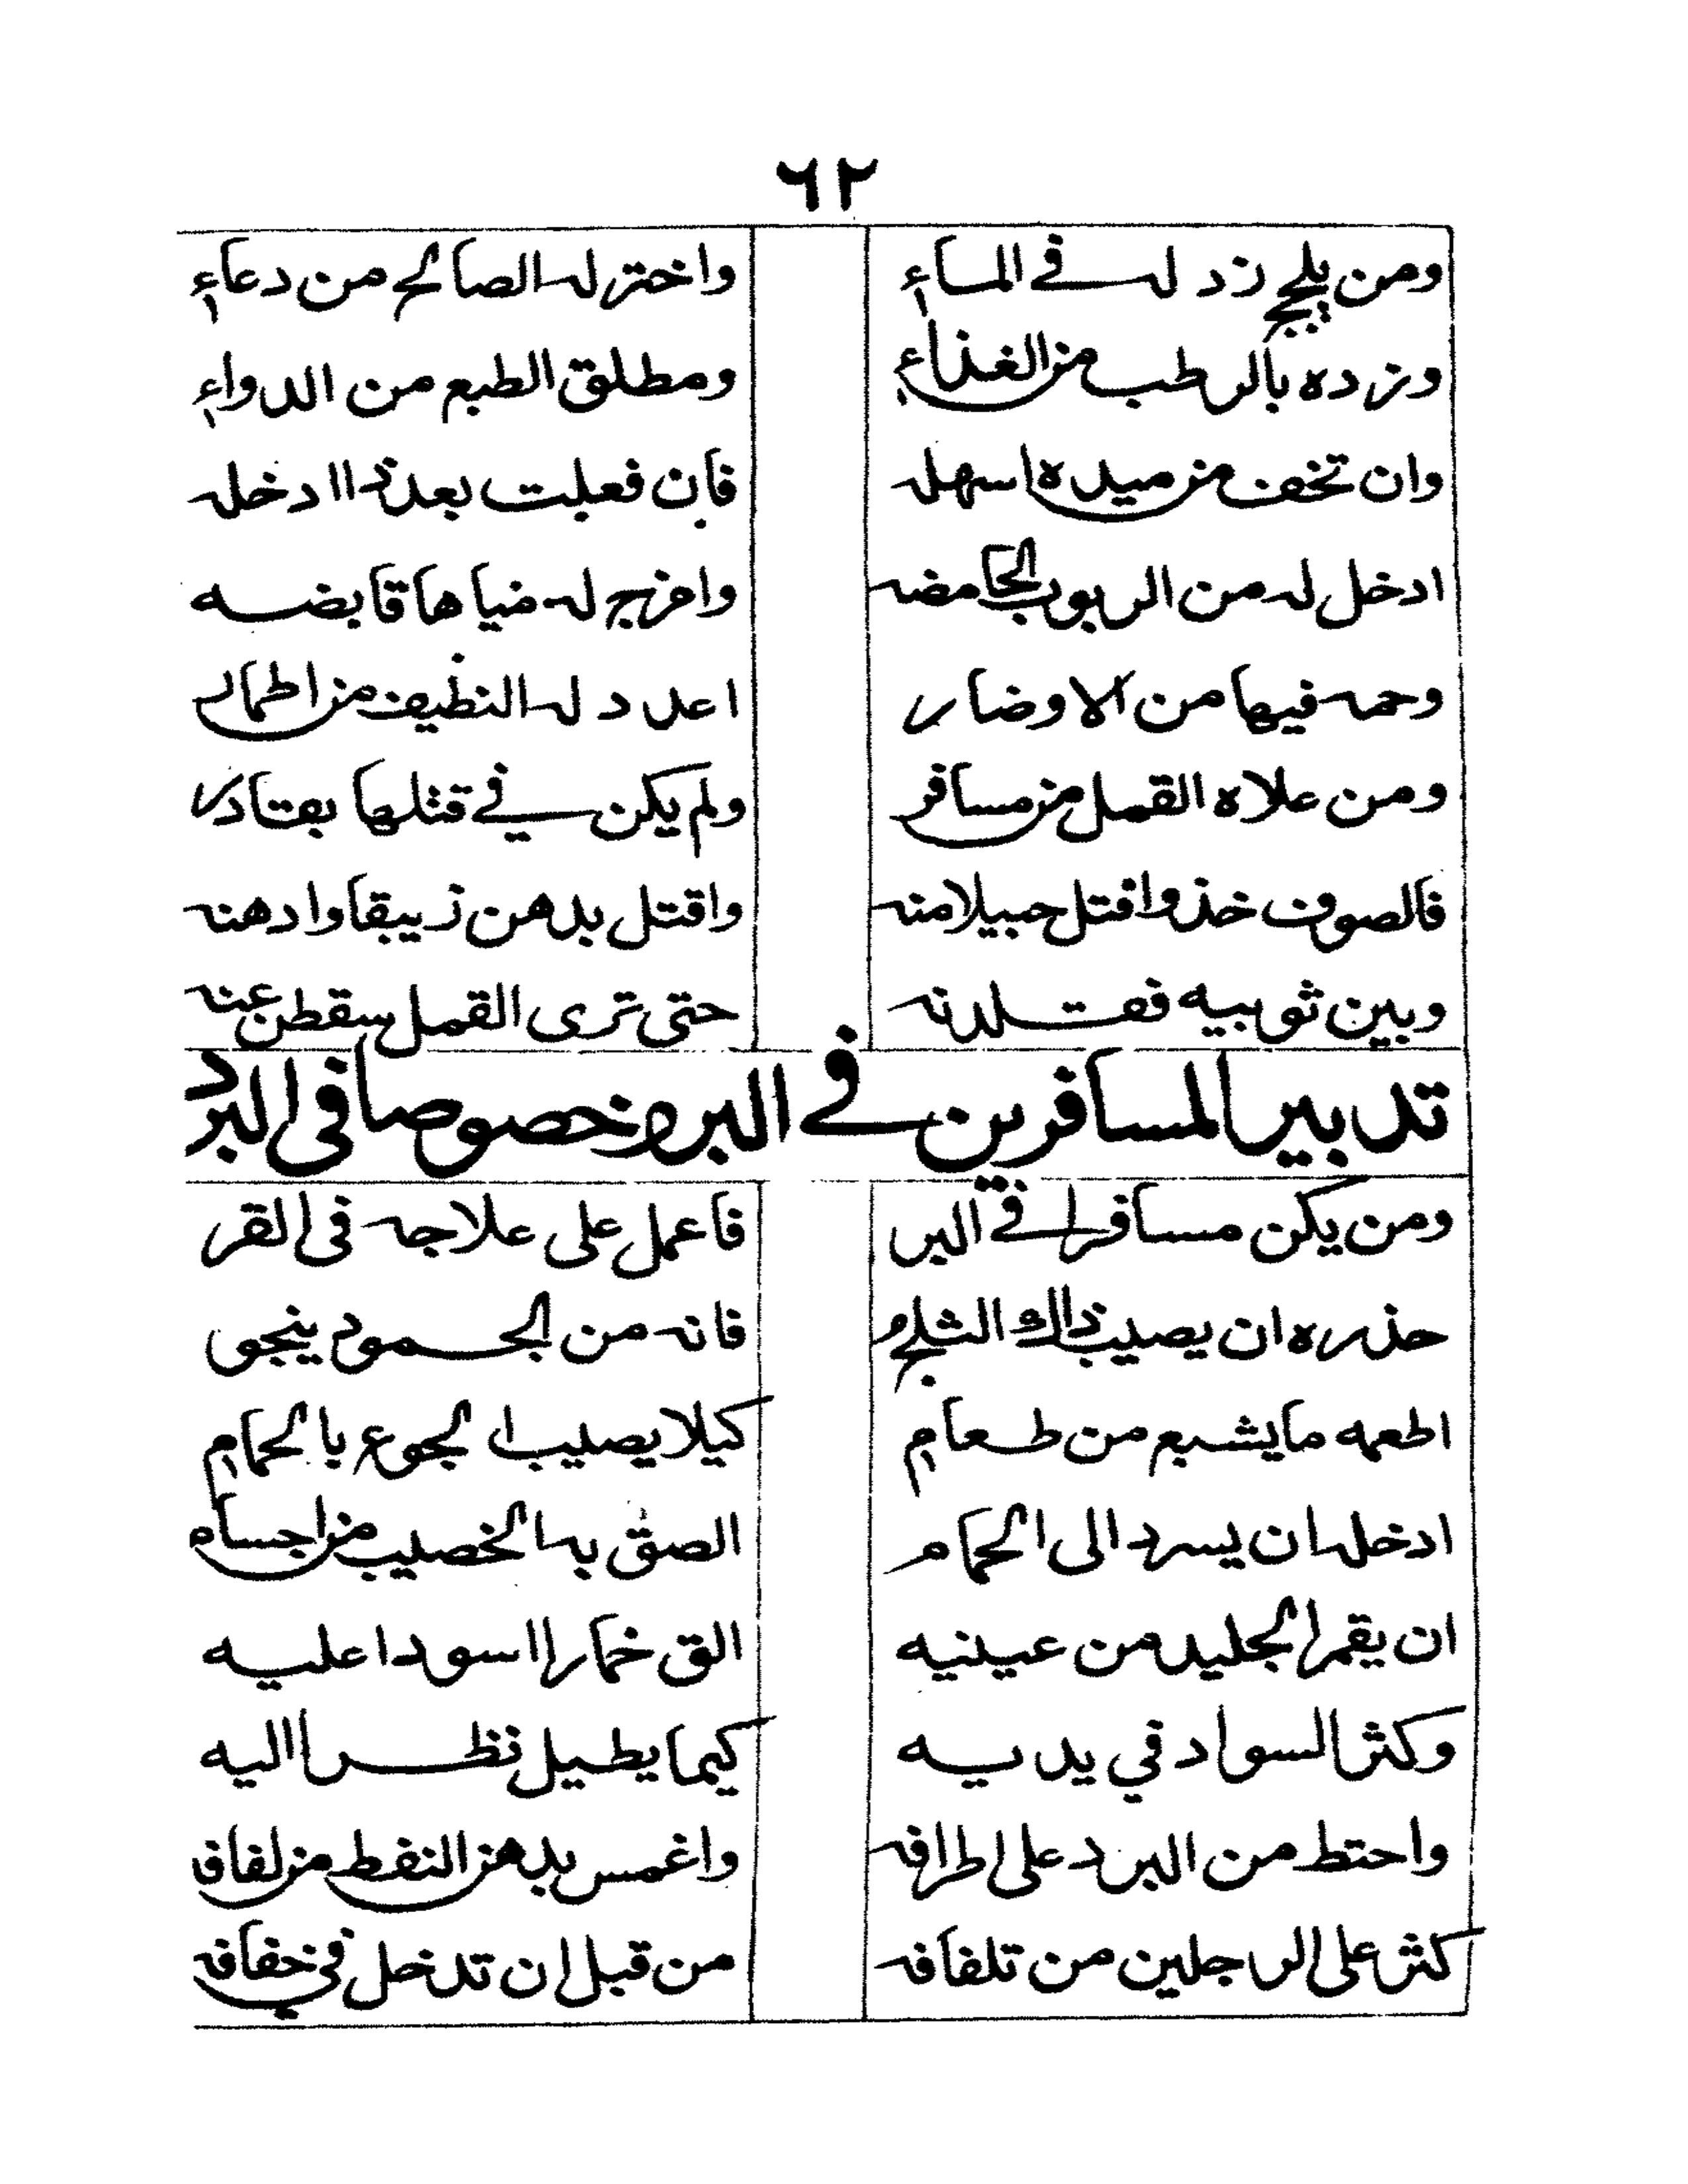 ٦٢
ومن يلجج زد له في الماء واختر له الصالح من دعاء
وزده بالرطب من الغذاء ومطلق الطبع من الدواء
وان تخف من ميده اسهله فان فعلت بعد ذا ادخله
ادخل له من الربوب الحامضه وامزج له مياها قابضه
وحمه فيها من الاوضار اعدد له النظيف من اطمار
ومن علاه القمل من مسافر ولم يكن في قتلها بقادر
فالصوف خذ وافتل حبيلا منه واقتل بدهن زيبقا وادهنه
وبين ثوبيه فقلدنه حتى ترى القمل سقطن عنه
تدبير المسافرين في البر وخصوصا في البرد
ومن يكن مسافرا في البر فاعمل على علاجه في القر
حذره ان يصيب ذاك الثلج فانه من الجمود ينجو
اطعمه ما يشبع من طعام كيلا يصيب الجوع بالحمام
ادخله ان يسرد الى الحمام الصق به الخصيب من اجسام
ان يقمر الجليد من عينيه الق خمارا اسودا عليه
وكثر السواد في يديه كيما يطيل نظرا اليه
واحتط من البرد على اطرافه واغمس بدهن النفط من لفافه
كثر على الرجلين من تلفافه من قبل ان تدخل في خفافه